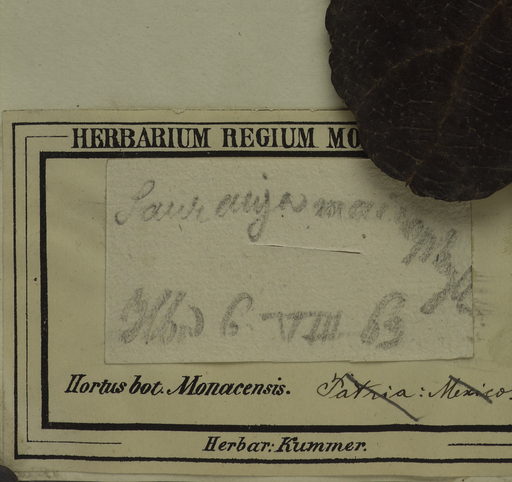 HERBARIUM REGIUM MO
Saurauja
6 VIII 63
Hortus bot. Monacensis. Patria: Mexico.
Herbar: Kummer.